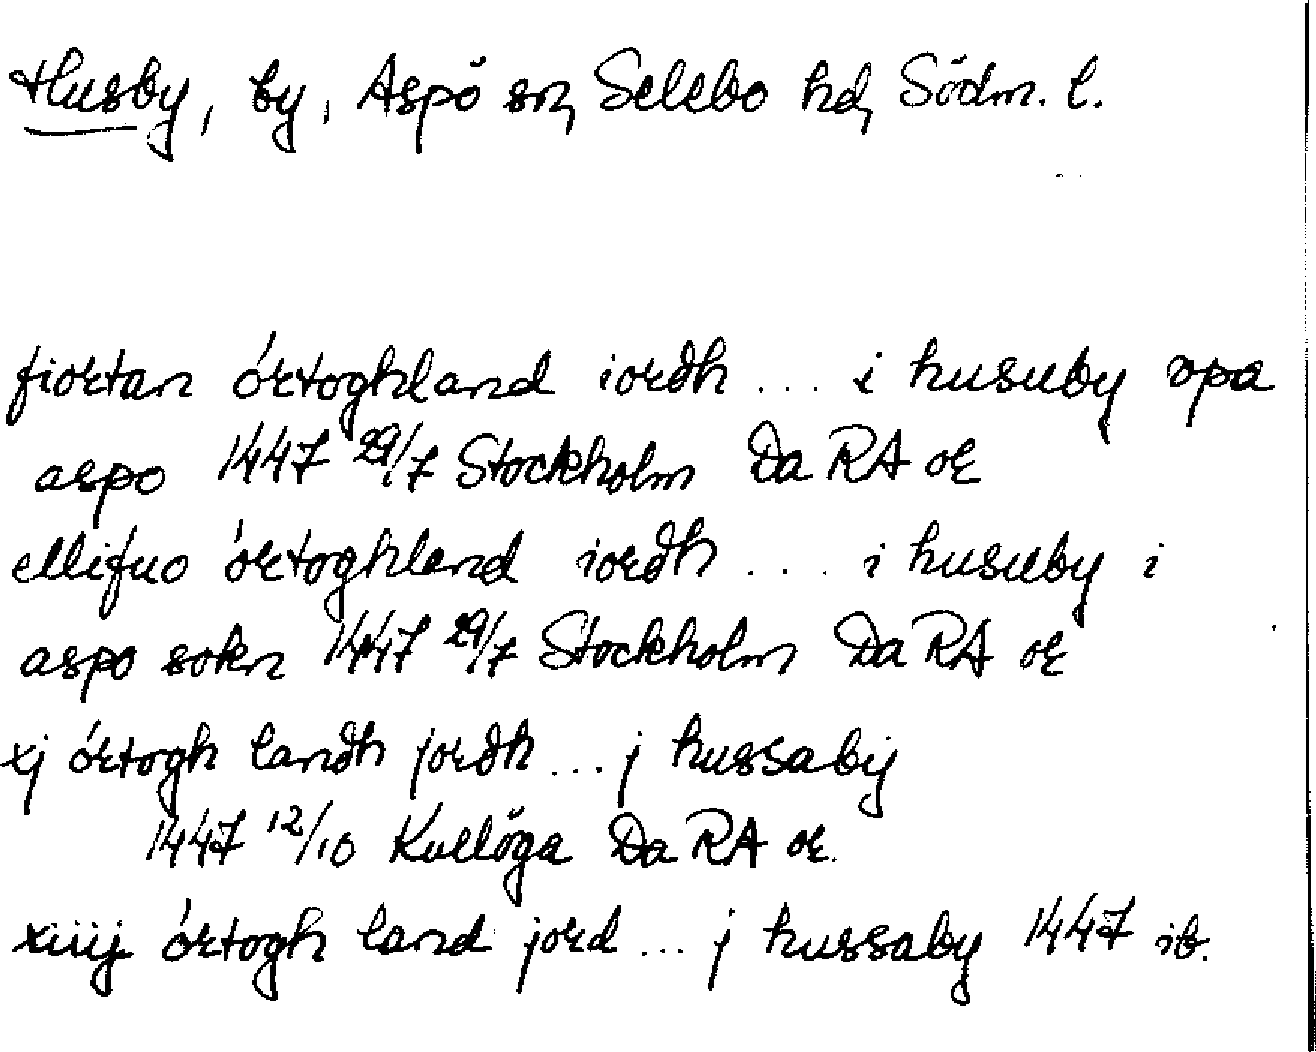 Husby, by, Aspö sn, Selebo hd, Södm. l.
fiortan órtoghland iordh ... i husuby vpa
aspo 1447 29/7 Stockholm Da RA or
ellifuo órtoghland iordh ... i husuby i
aspo sokn 1447 29/7 Stockholm Da RA or
xj órtogh landh jordh ... j hussabij
1447 12/10 Kullöga Da RA or.
xiiij órtogh land jord ... j hussaby 1447 ib.